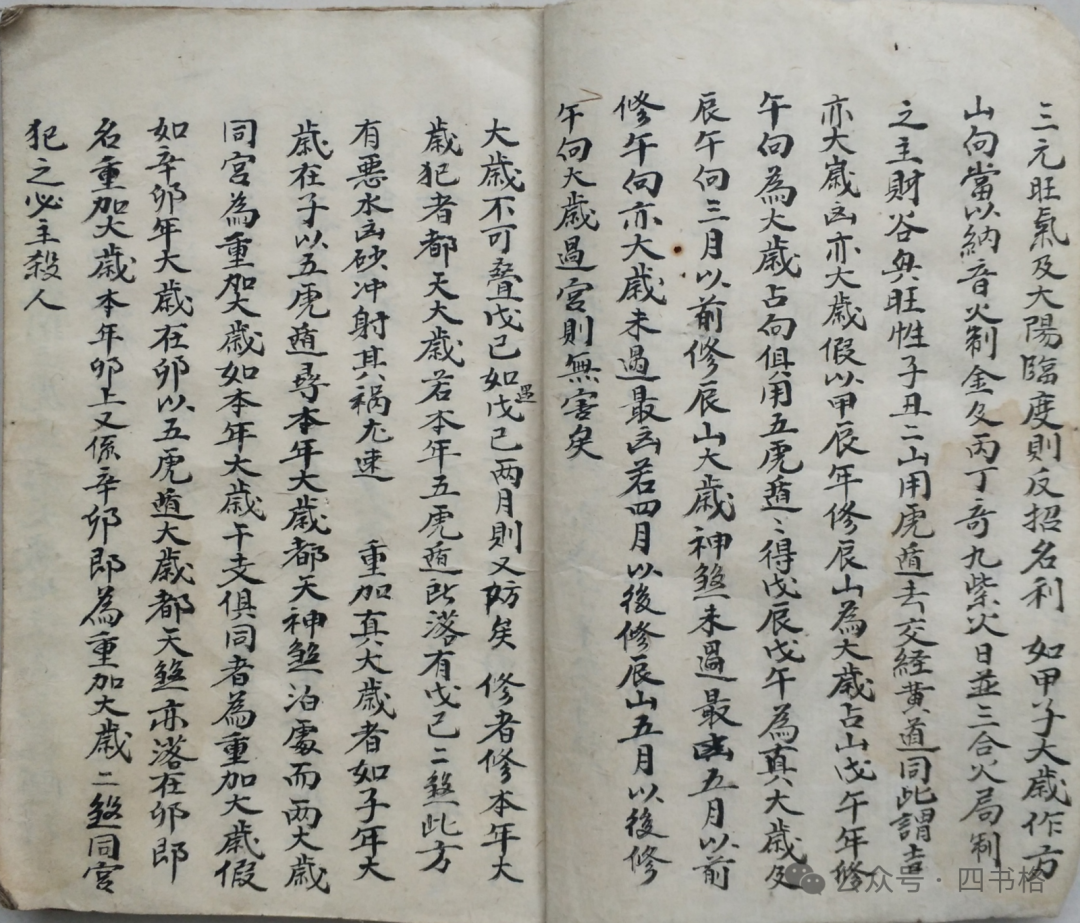 三元旺氣及大陽臨度則反招名利　如甲子大歲作方
山向當以納音火制金及丙丁奇九紫火日並三合火局制
之主財谷興旺牲子丑二山用虎遁去交經黃道同此謂吉
亦大歲凶亦大歲假以甲辰年修辰山為大歲占山戊午年修
午向為大歲占向俱用五虎遁〻得戊辰戊午為真大歲及
辰午向三月以前修辰山大歲神煞未過最凶五月以前
修午向亦大歲未過最凶若四月以後修辰山五月以後修
午向大歲過宮則無害矣
大歲不可叠戊己如遇戊己兩月則又妨矣　修者修本年大
歲犯者都天大歲若本年五虎遁所落有戊己二煞此方
有惡水凶砂冲射其禍尤速　重加真大歲者如子年大
歲在子以五虎遁尋本年大歲都天神煞泊處而兩大歲
同宮為重加大歲如本年大歲干支俱同者為重加大歲假
如辛卯年大歲在卯以五虎遁大歲都天煞亦落在卯即
名重加大歲本年卯上又係辛卯即為重加大歲二煞同宮
犯之必主殺人
公众号·四书格